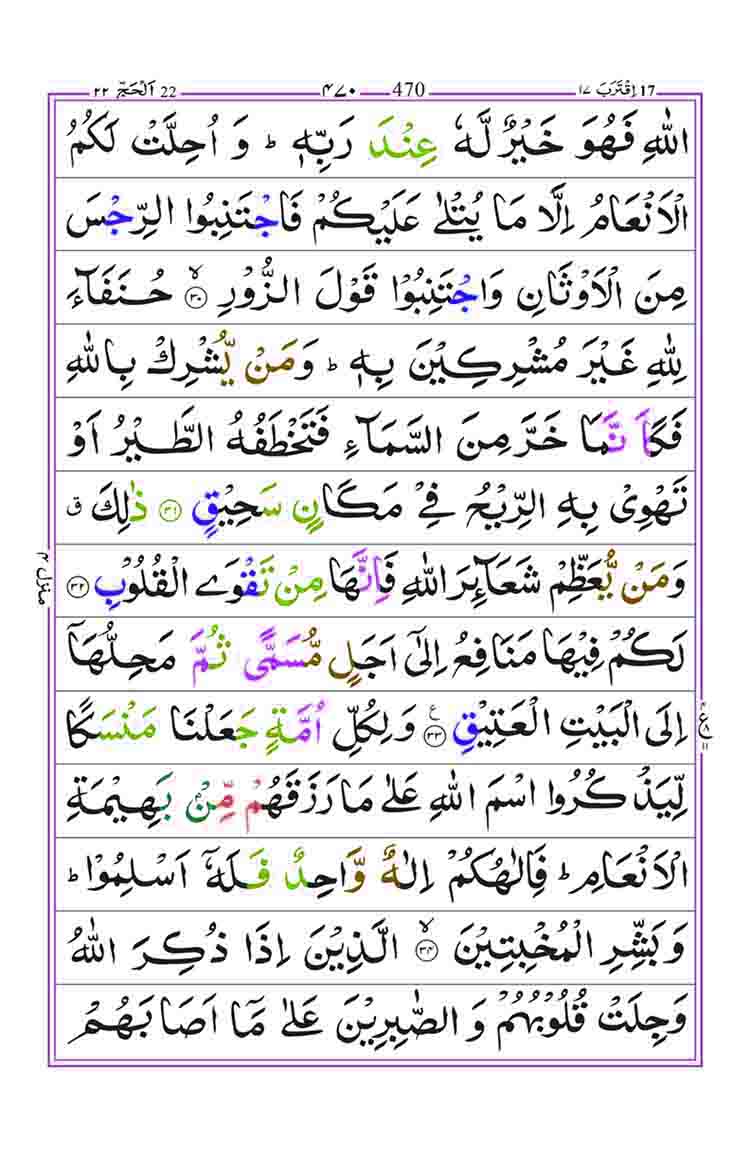 اِقْتَرَبَ ١٧ 17 470 ۴۷۰ 22 اَلْحَجّ ٢٢
اللّٰهِ فَهُوَ خَيْرٌ لَّهٗ عِنْدَ رَبِّهٖ ؕ وَ اُحِلَّتْ لَكُمُ
الْاَنْعَامُ اِلَّا مَا يُتْلٰى عَلَيْكُمْ فَاجْتَنِبُوا الرِّجْسَ
مِنَ الْاَوْثَانِ وَاجْتَنِبُوْا قَوْلَ الزُّوْرِ ۙ‏ ﴿۳۰﴾ حُنَفَآءَ
لِلّٰهِ غَيْرَ مُشْرِكِيْنَ بِهٖ ؕ وَمَنْ يُّشْرِكْ بِاللّٰهِ
فَكَاَنَّمَا خَرَّ مِنَ السَّمَآءِ فَتَخْطَفُهُ الطَّيْرُ اَوْ
تَهْوِىْ بِهِ الرِّيْحُ فِىْ مَكَانٍ سَحِيْقٍ ﴿۳۱﴾ ذٰلِكَ ق
وَمَنْ يُّعَظِّمْ شَعَآئِرَ اللّٰهِ فَاِنَّهَا مِنْ تَقْوَى الْقُلُوْبِ ﴿۳۲﴾
منزل ۴
لَكُمْ فِيْهَا مَنَافِعُ اِلٰٓى اَجَلٍ مُّسَمًّى ثُمَّ مَحِلُّهَاۤ
اِلَى الْبَيْتِ الْعَتِيْقِ ﴿۳۳﴾ ع وَ لِكُلِّ اُمَّةٍ جَعَلْنَا مَنْسَكًا
لِّيَذْكُرُوا اسْمَ اللّٰهِ عَلٰى مَا رَزَقَهُمْ مِّنْۢ بَهِيْمَةِ
الْاَنْعَامِ ؕ فَاِلٰهُكُمْ اِلٰهٌ وَّاحِدٌ فَلَهٗۤ اَسْلِمُوْا ؕ
وَ بَشِّرِ الْمُخْبِتِيْنَ ۙ‏ ﴿۳۴﴾ الَّذِيْنَ اِذَا ذُكِرَ اللّٰهُ
وَجِلَتْ قُلُوْبُهُمْ وَ الصّٰبِرِيْنَ عَلٰى مَاۤ اَصَابَهُمْ